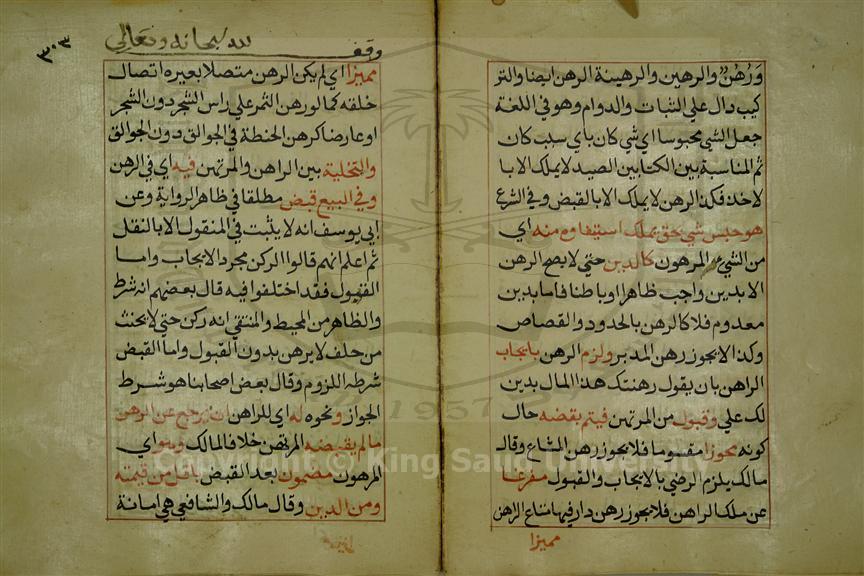 ورهن والرهين والرهينة الرهن ايضا والتر
كيب دال علي الثبات والدوام وهو في اللغة
جعل الشي محبوسا اي شي كان باي سبب كان
ثم المناسبة بين الكتابين الصيد لا يملك الا با
لاخذ فكذا الرهن لا يملك الا بالقبض وفي الشرع
هو حبس شي بحق يملك استيفاوه منه اي
من الشيء المرهون كالدين حتي لا يصح الرهن
الا بدين واجب ظاهرا وباطنا فاما بدين
معدوم فلا كالرهن بالحدود والقصاص
وكذا لا يجوز رهن المدبر ولزم الرهن بايجاب
الراهن بان يقول رهنتك هذا المال بدين
لك علي وقبول من المرتهن فيتم بقبضه حال
كونه محوزا مقسوما فلا يجوز رهن الشاع وقال
مالك يلزم الرضي بالايجاب والقبول مفرغا
عن ملك الراهن فلا يجوز رهن دار فيها متاع الراهن
مميزا
وقف لله سبحانه وتعالي
٣٠٣
مميزا اي لم يكن الرهن متصلا بغيره اتصال
خلقه كما لو رهن الثمر علي راس الشجر دون الشجر
او عارضا كرهن الحنطة في الجوالق دون الجوالق
والتخلية بين الراهن والمرتهن فيه اي في الرهن
وفي البيع قبض مطلقا في ظاهر الرواية وعن
ابي يوسف انه لا يثبت في المنقول الا بالنقل
ثم اعلم انهم قالوا الركن مجرد الايجاب واما
القبول فقد اختلفوا فيه قال بعضهم انه شرط
والظاهر من المحيط والمنتقي انه ركن حتي لا يحنث
من حلف لا يرهن بدون القبول واما القبض
شرطه اللزوم وقال بعض اصحابنا هو شرط
الجواز ونحوه له اي للراهن ان يرجع عن الرهن
ما لم يقبضه المرتهن خلافا لمالك وهو اي
المرهون مضمون بعد القبض باقل من قيمته
ومن الدين وقال مالك والشافعي هي امانة
Copyright © King Saud University
1957